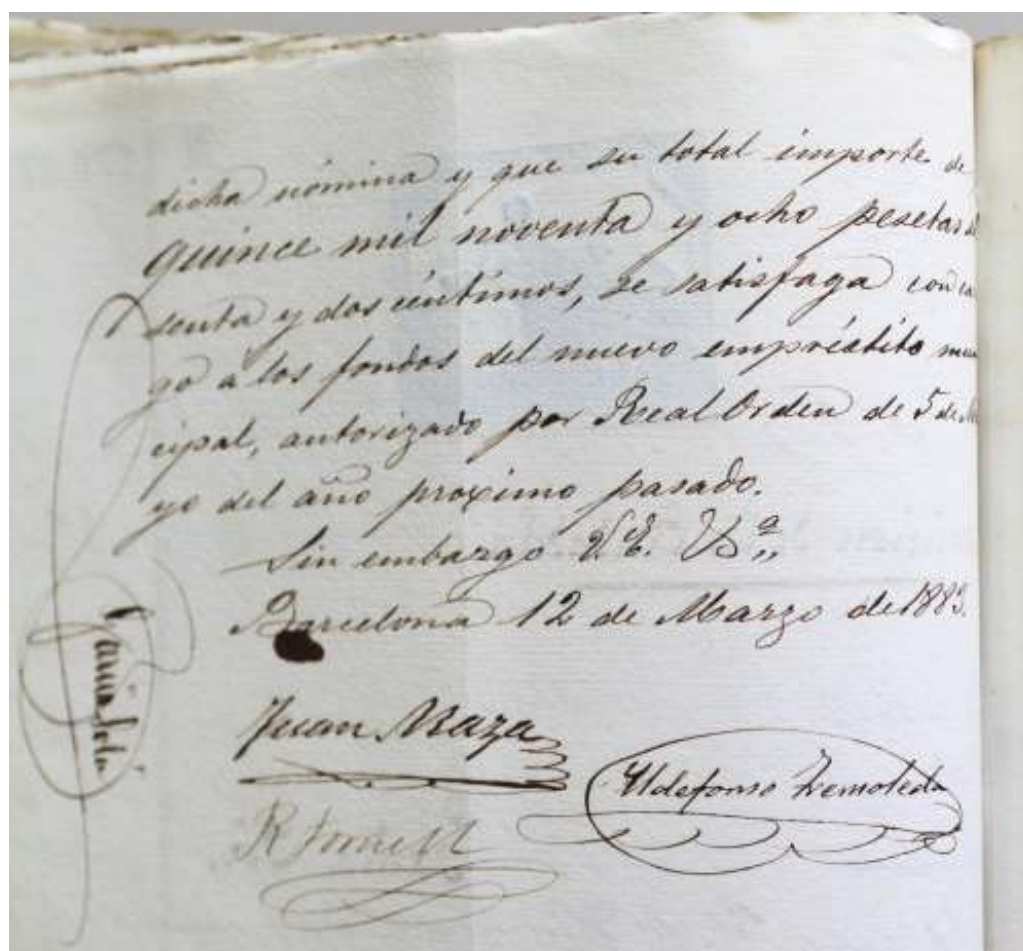 dicha nómina y que su total importe de
quince mil noventa y ocho pesetas
senta y dos céntimos, se satisfaga con ca
go á los fondos del nuevo empréstito mu
cipal, autorizado por Real Orden de 5 de
yo del año proximo pasado.
Sin embargo V.E.
Barcelona 12 de Marzo de 1883.
Juan Maza
Ildefonso Tremoleda